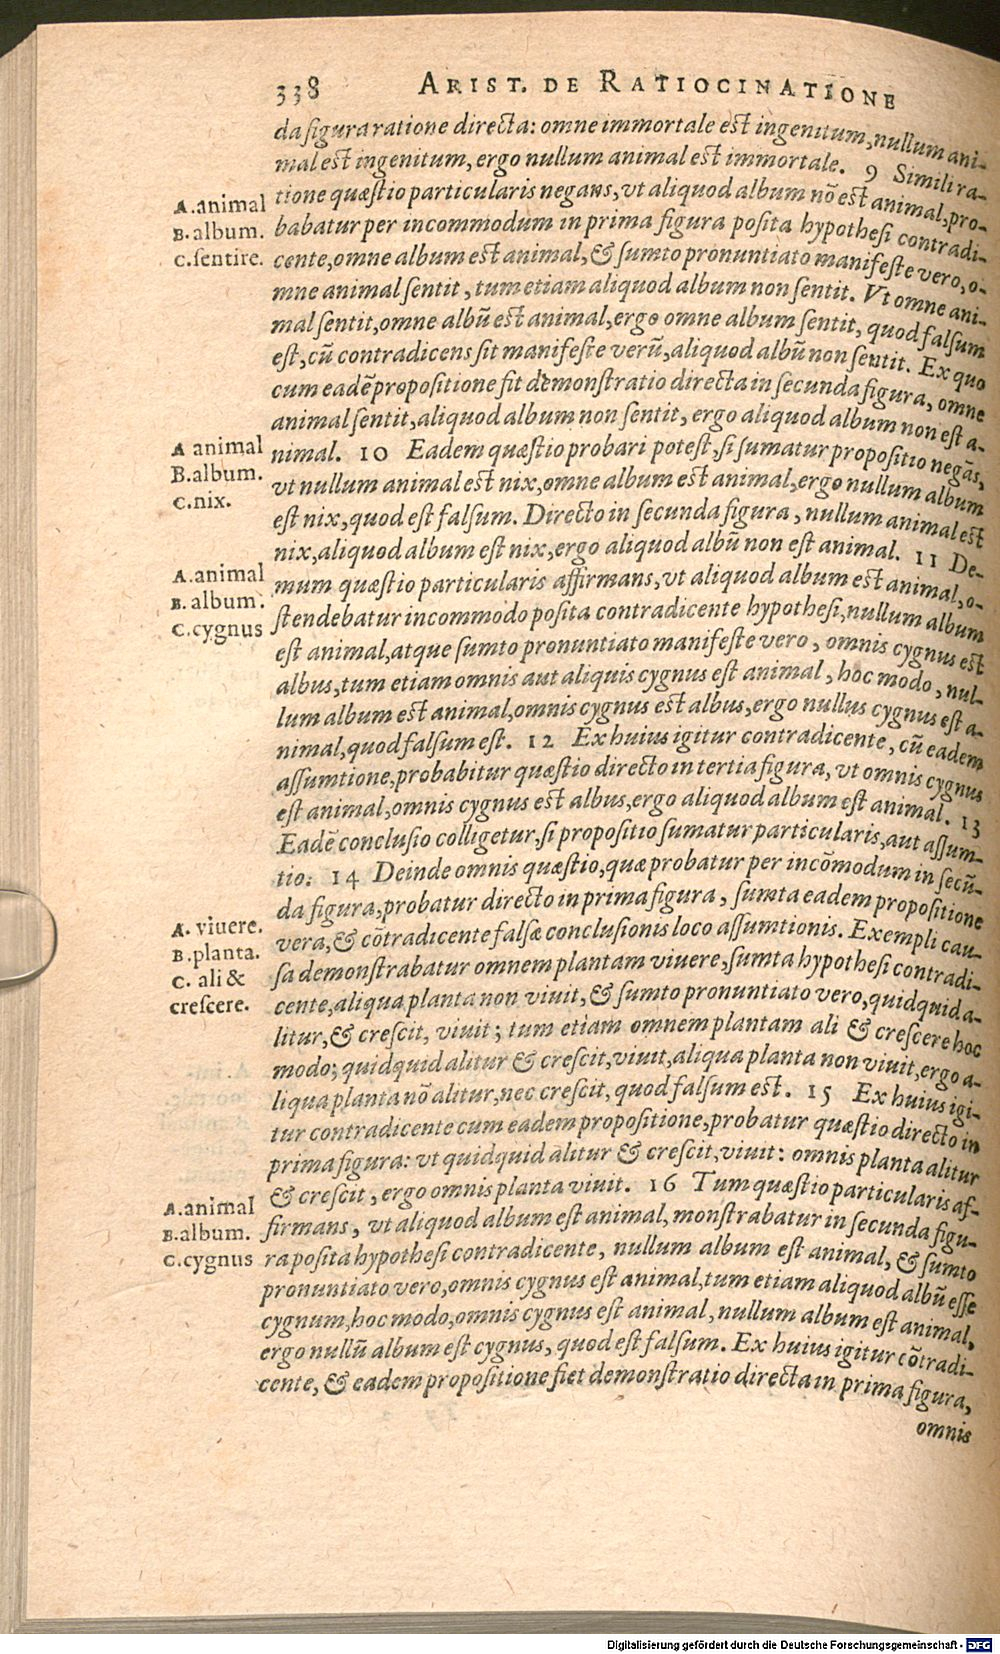 338 ARIST. DE RATIOCINATIONE
da figura ratione directa: omne immortale est ingenitum, nullum ani-
mal est ingenitum, ergo nullum animal est immortale. 9 Simili ra-
tione quæstio particularis negans, vt aliquod album nõ est animal, pro-
babatur per incommodum in prima figura posita hypothesi contradi-
cente, omne album est animal, & sumto pronuntiato manifeste vero, o-
mne animal sentit, tum etiam aliquod album non sentit. Vt omne ani-
mal sentit, omne albũ est animal, ergo omne album sentit, quod falsum
est, cũ contradicens sit manifeste verũ, aliquod albũ non sentit. Ex quo
cum eadẽ propositione fit demonstratio directa in secunda figura, omne
animal sentit, aliquod album non sentit, ergo aliquod album non est a-
nimal. 10 Eadem quæstio probari potest, si sumatur propositio negãs,
vt nullum animal est nix, omne album est animal, ergo nullum album
est nix, quod est falsum. Directo in secunda figura, nullum animal est
nix, aliquod album est nix, ergo aliquod albũ non est animal. 11 De-
mum quæstio particularis affirmans, vt aliquod album est animal, o-
stendebatur incommodo posita contradicente hypothesi, nullum album
est animal, atque sumto pronuntiato manifeste vero, omnis cygnus est
albus, tum etiam omnis aut aliquis cygnus est animal, hoc modo, nul-
lum album est animal, omnis cygnus est albus, ergo nullus cygnus est a-
nimal, quod falsum est. 12 Ex huius igitur contradicente, cũ eadem
assumtione, probabitur quæstio directo in tertia figura, vt omnis cygnus
est animal, omnis cygnus est albus, ergo aliquod album est animal. 13
Eadẽ conclusio colligetur, si propositio sumatur particularis, aut assum-
tio: 14 Deinde omnis quæstio, quæ probatur per incõmodum in secũ-
da figura, probatur directo in prima figura, sumta eadem propositione
vera, & cõtradicente falsæ conclusionis loco assumtionis. Exempli cau-
sa demonstrabatur omnem plantam viuere, sumta hypothesi contradi-
cente, aliqua planta non viuit, & sumto pronuntiato vero, quidquid a-
litur, & crescit, viuit; tum etiam omnem plantam ali & crescere hoc
modo; quidquid alitur & crescit, viuit, aliqua planta non viuit, ergo a-
liqua planta nõ alitur, nec crescit, quod falsum est. 15 Ex huius igi-
tur contradicente cum eadem propositione, probatur quæstio directo in
prima figura: vt quidquid alitur & crescit, viuit: omnis planta alitur
& crescit, ergo omnis planta viuit. 16 Tum quæstio particularis af-
firmans, vt aliquod album est animal, monstrabatur in secunda figu-
ra posita hypothesi contradicente, nullum album est animal, & sumto
pronuntiato vero, omnis cygnus est animal, tum etiam aliquod albũ esse
cygnum, hoc modo, omnis cygnus est animal, nullum album est animal,
ergo nullũ album est cygnus, quod est falsum. Ex huius igitur cõtradi-
cente, & eadem propositione fiet demonstratio directa in prima figura,
omnis
A. animal
B. album.
C. sentire.
A animal
B. album.
C. nix.
A. animal
B. album.
C. cygnus
A. viuere.
B. planta.
C. ali &
crescere.
A. animal
B. album.
C. cygnus
Digitalisierung gefördert durch die Deutsche Forschungsgemeinschaft - DFG